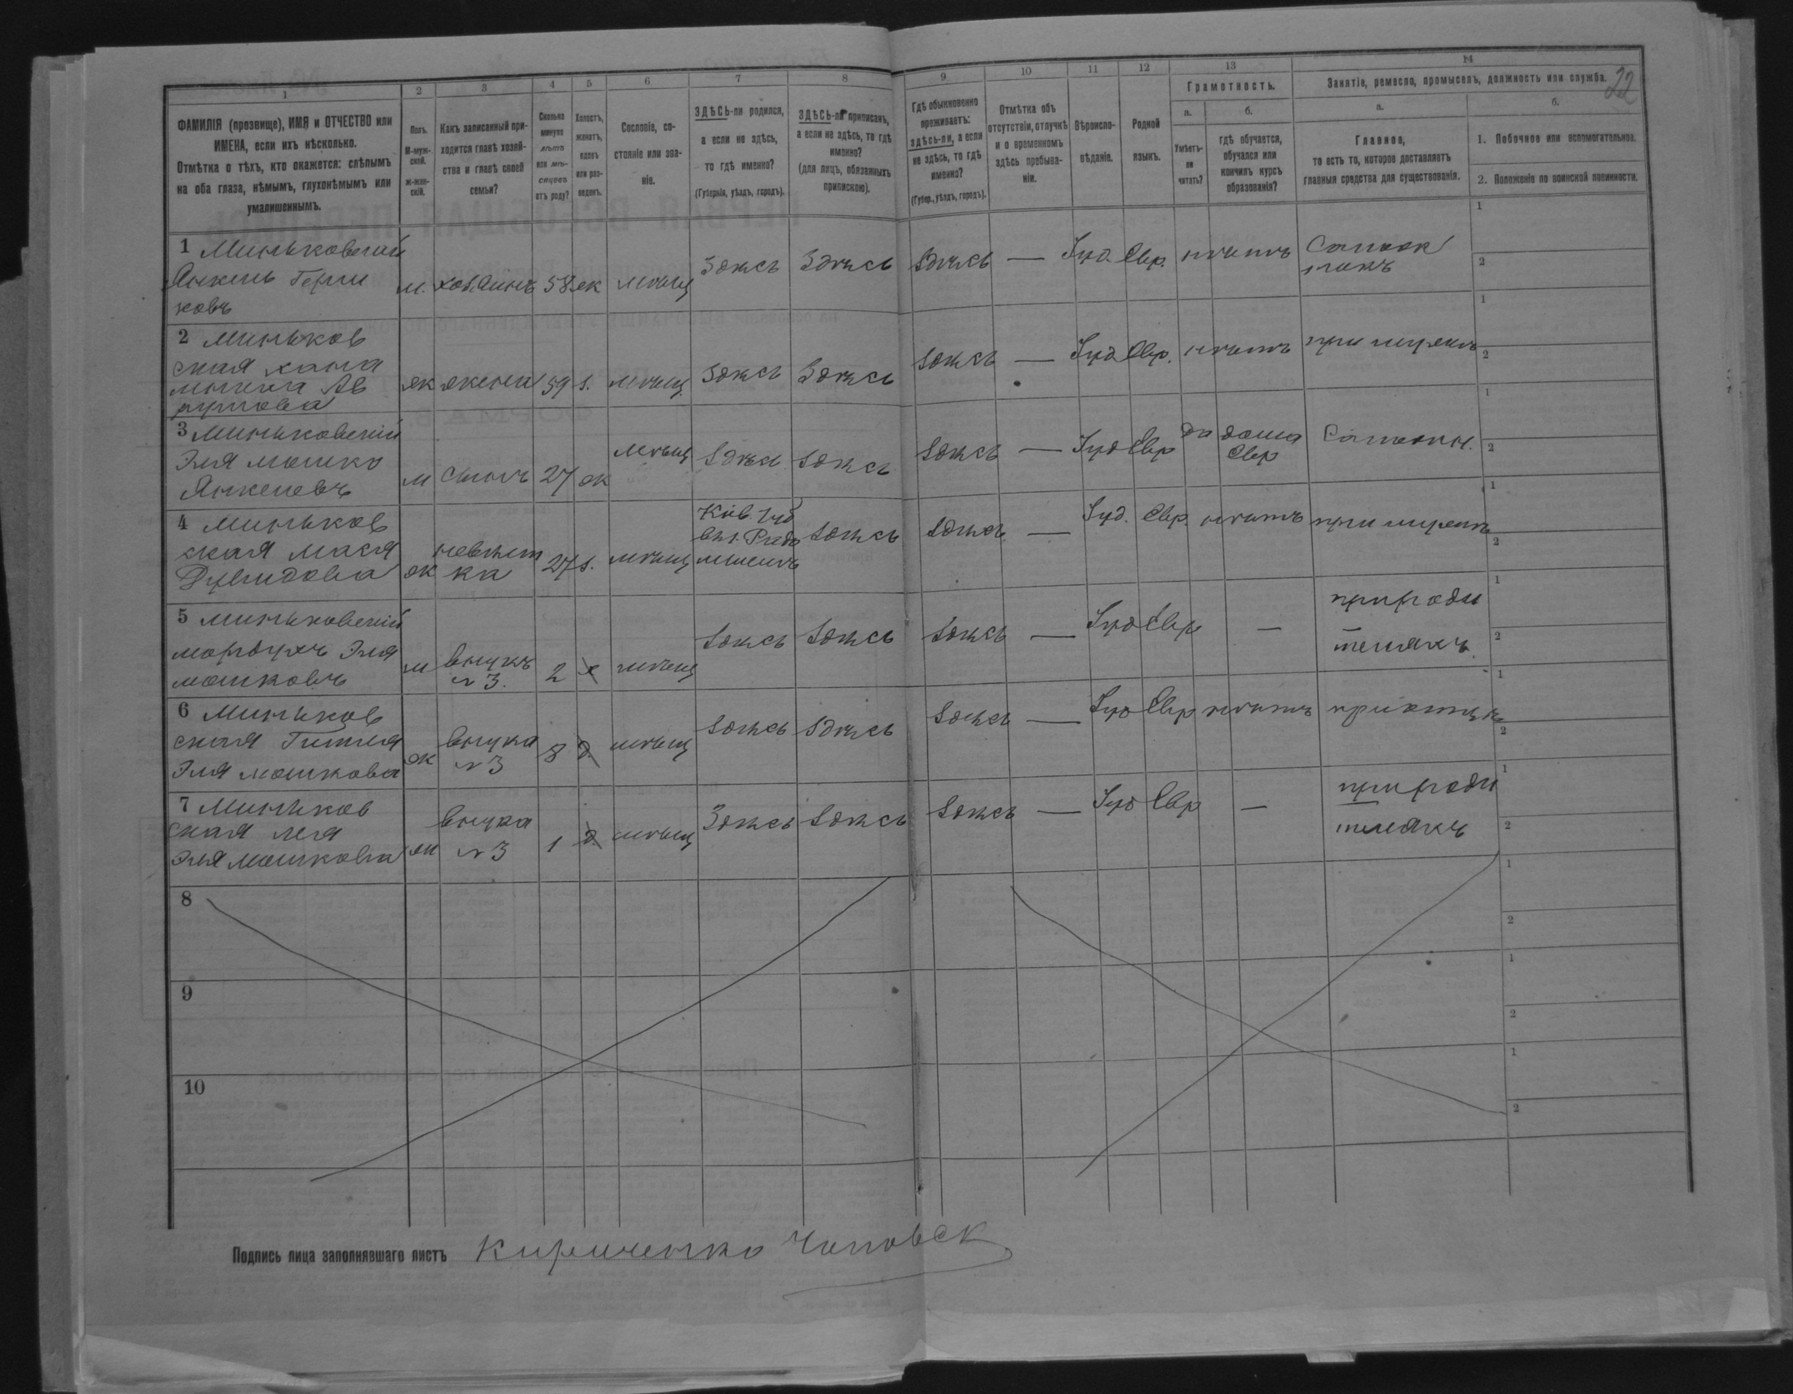 22
1 2 3 4 5 6 7 8 9 10 11 12 13 14
ФАМИЛІЯ (прозвище), ИМЯ и ОТЧЕСТВО или
ИМЕНА, если ихъ нѣсколько.
Отмѣтка о тѣхъ, кто окажется: слѣпымъ
на оба глаза, нѣмымъ, глухонѣмымъ или
умалишеннымъ.
Полъ.
М-муж-
ской.
Ж-жен-
скій.
Какъ записанный при-
ходится главѣ хозяй-
ства и главѣ своей
семьи?
Сколько
минуло
лѣтъ
или мѣ-
сяцевъ
отъ роду?
Холостъ,
женатъ,
вдовъ
или раз-
веденъ.
Сословіе, со-
стояніе или зва-
ніе.
ЗДѢСЬ-ли родился,
а если не здѣсь,
то гдѣ именно?
(Губернія, уѣздъ, городъ).
ЗДѢСЬ-ли приписанъ,
а если не здѣсь, то гдѣ
именно?
(для лицъ, обязанныхъ
припискою).
Гдѣ обыкновенно
проживаетъ:
здѣсь-ли, а если
не здѣсь, то гдѣ
именно?
(Губер., уѣздъ, городъ).
Отмѣтка объ
отсутствіи, отлучкѣ
и о временномъ
здѣсь пребыва-
ніи.
Вѣроиспо-
вѣданіе.
Родной
языкъ.
Грамотность.
а.
Умѣетъ-
ли
читать?
б.
гдѣ обучается,
обучался или
кончилъ курсъ
образованія?
Занятіе, ремесло, промыселъ, должность или служба.
а.
Главное,
то есть то, которое доставляетъ
главныя средства для существованія.
б.
1. Побочное или вспомогательное.
2. Положеніе по воинской повинности.
1 Миньковскій
Янкель Герш
ковъ
м. хозяинъ 58 ж мѣщ Здѣсь Здѣсь Здѣсь — Іуд. Евр. нѣтъ Сапож
никъ
2 Миньков
ская хана
Ав
ж жена 59 з. мѣщ. Здѣсь Здѣсь Здѣсь — Іуд Евр. нѣтъ при мужѣ
3 Миньковскій
Эля мошко
Янкелевъ
м сынъ 27 ж мѣщ Здѣсь Здѣсь Здѣсь — Іуд Евр да дома
Евр
Сапожн.
4 Миньков
ская Мася
Дувидова
ж невѣст
ка
27 з. мѣщ Кіев. Губ
Здѣсь Здѣсь — Іуд. Евр. нѣтъ при мужѣ
5 Миньковскій
мордухъ Эля
мошковъ
м внукъ
№ 3.
2 х мѣщ Здѣсь Здѣсь Здѣсь — Іуд Евр — при роди
теляхъ
6 Миньков
ская
Эля мошкова
ж внука
№ 3
8 д мѣщ Здѣсь Здѣсь Здѣсь — Іуд Евр нѣтъ при отцѣ
7 Миньков
ская лея
Эля мошкова
ж внука
№ 3
1 д мѣщ Здѣсь Здѣсь Здѣсь — Іуд Евр — при роди
теляхъ
8
9
10
Подпись лица заполнявшаго листъ Кириченко